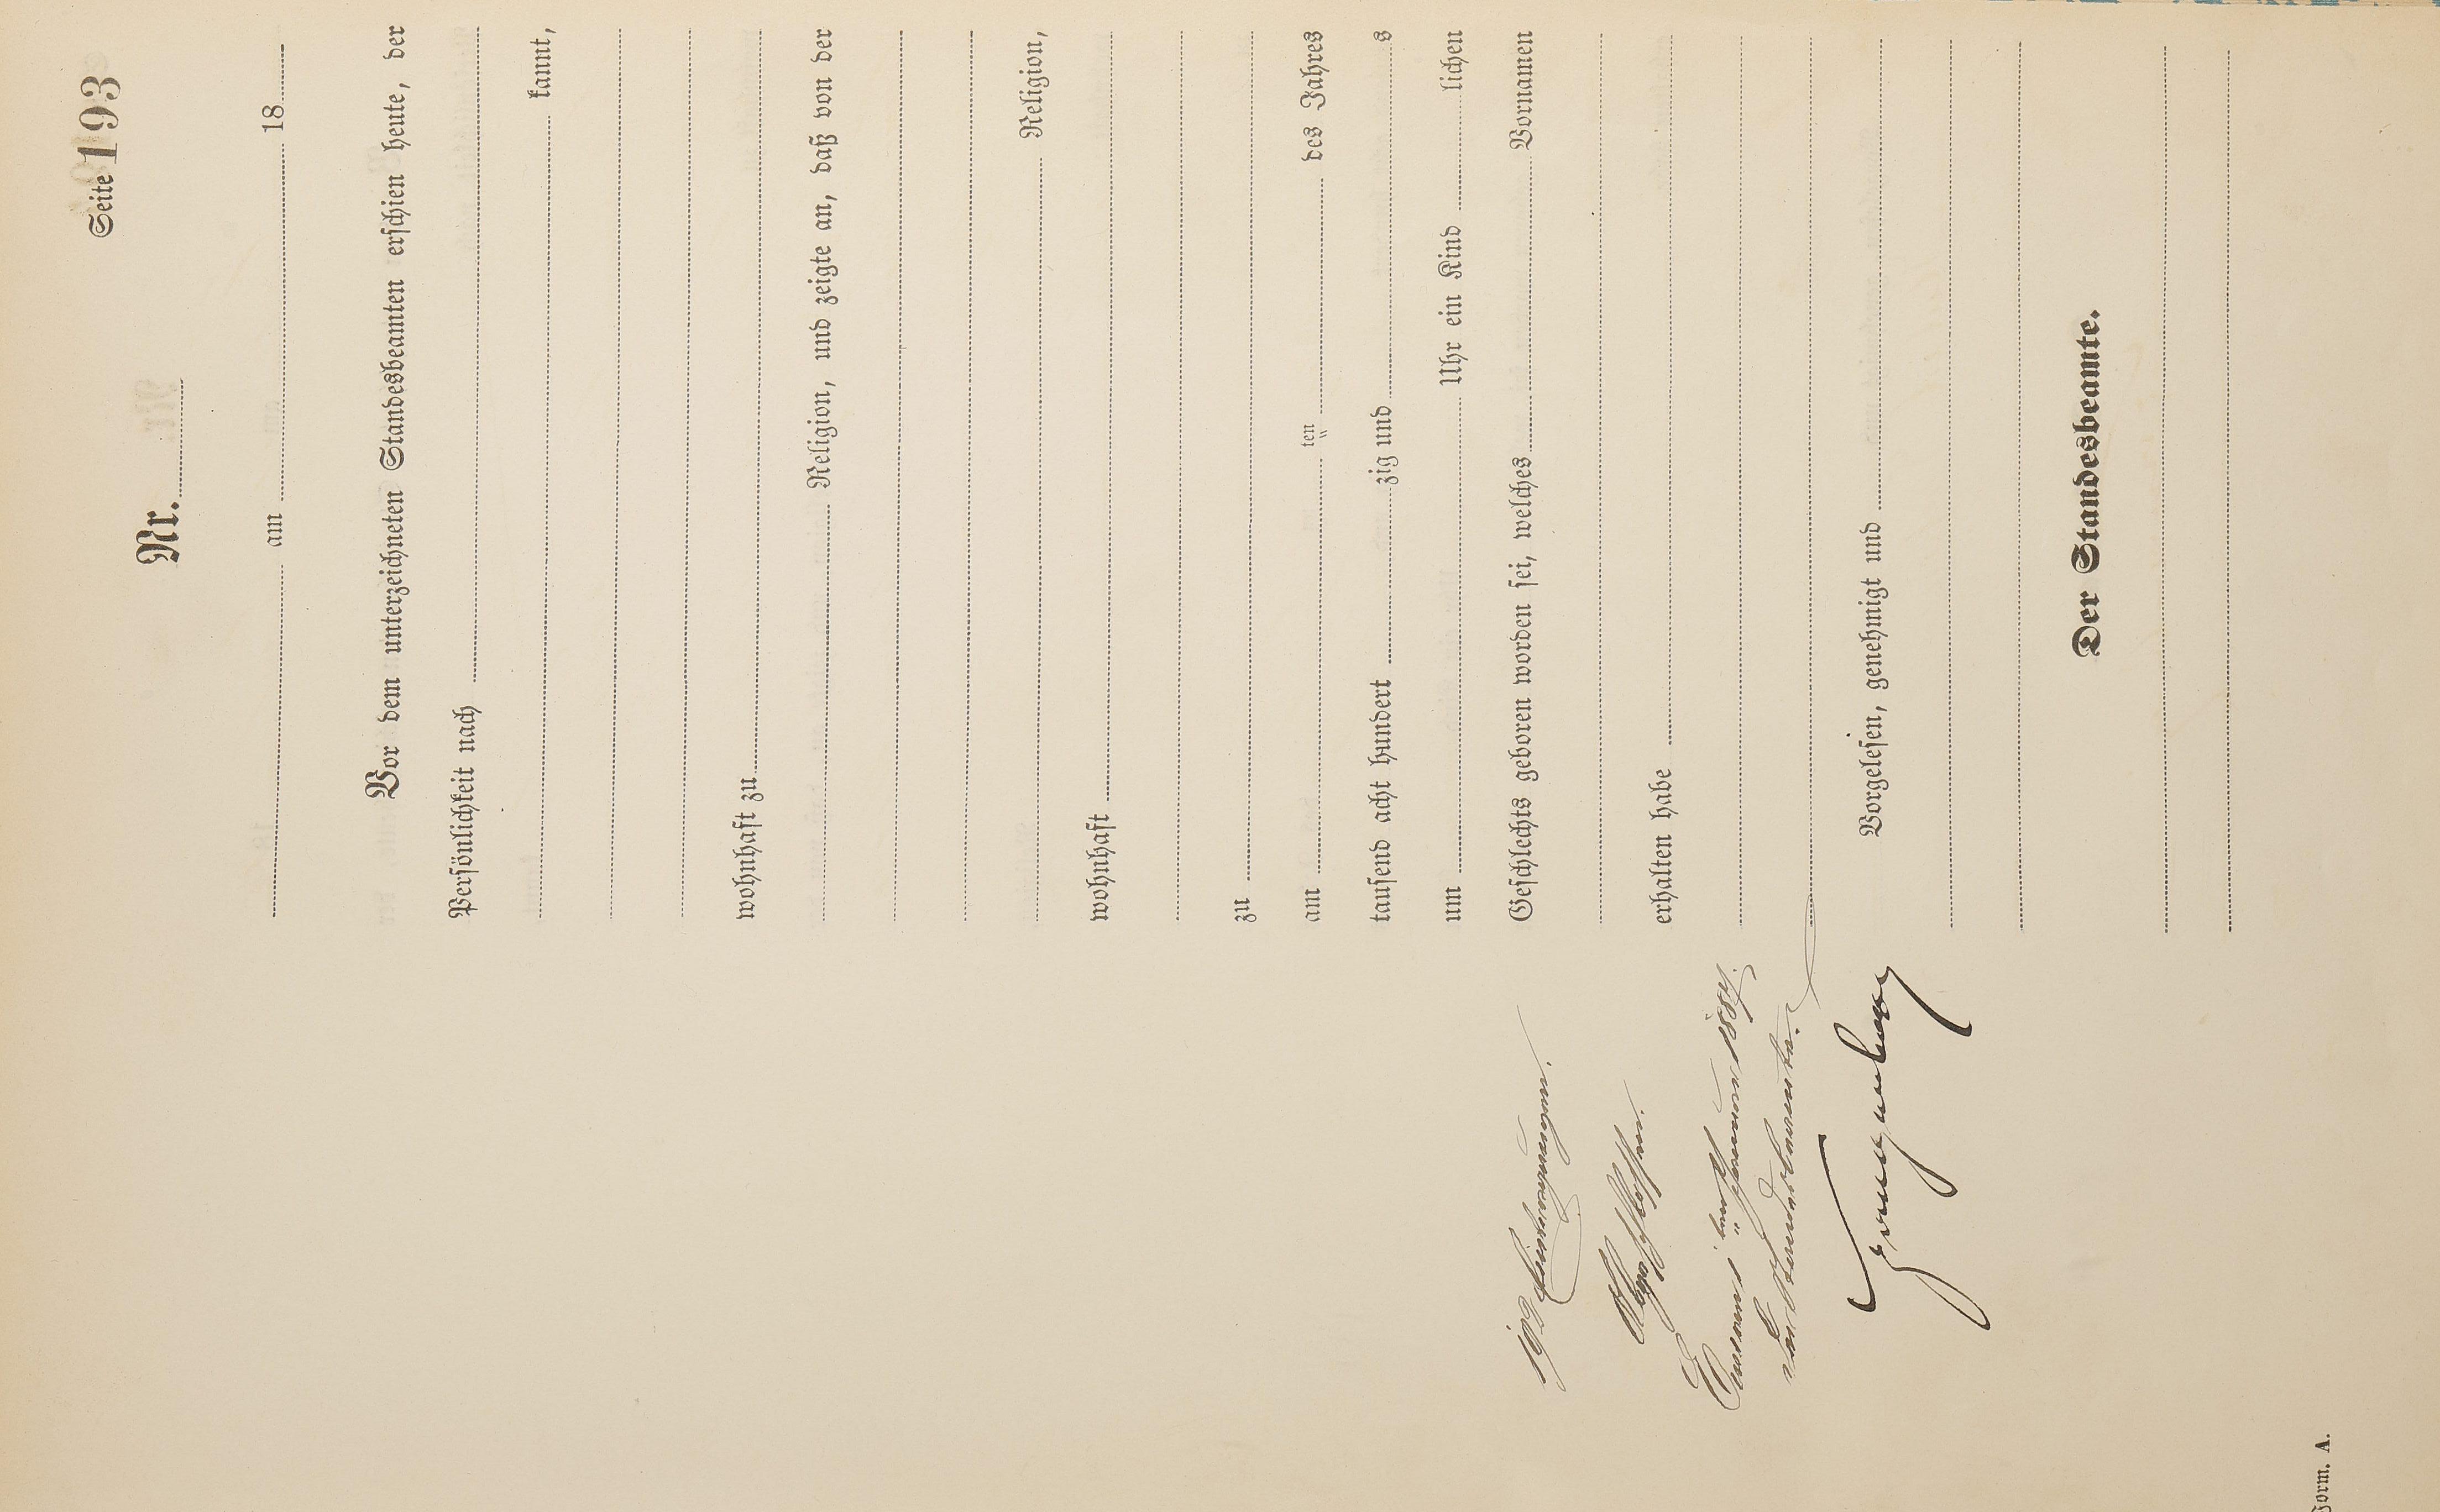 Seite 193
Nr.
am 18
Vor dem unterzeichneten Standesbeamten erschien heute, der
Persönlichkeit nach
kannt,
wohnhaft zu
Religion, und zeigte an, daß von der
Religion,
wohnhaft
zu
am ten des Jahres
tausend acht hundert zig und s
um Uhr ein Kind lichen
Geschlechts geboren worden sei, welches Vornamen
erhalten habe
Vorgelesen, genehmigt und
Der Standesbeamte.
192 Eintragungen.
Abgeschlossen.
am 1884.
Der Standesbeamte.
Form. A.